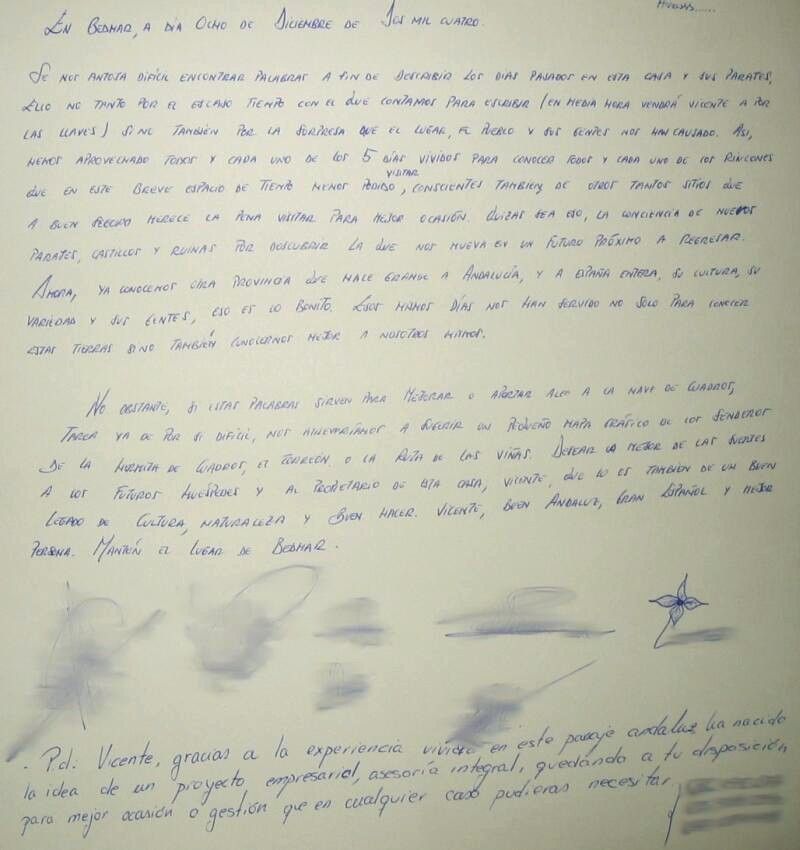 En Bedmar, a día ocho de Diciembre de Dos mil cuatro.
Se nos antoja difícil encontrar palabras a fin de describir los días pasados en esta casa y sus parajes,
ello no tanto por el escaso tiempo con el que contamos para escribir (en media hora vendrá Vicente a por
las llaves) si no también por la sorpresa que el lugar, el pueblo y sus gentes nos han causado. Así,
hemos aprovechado todos y cada uno de los 5 días vividos para conocer todos y cada uno de los rincones
que en este breve espacio de tiempo hemos podido visitar, conscientes también de otros tantos sitios que
a buen seguro merece la pena visitar para mejor ocasión. Quizás sea eso, la conciencia de nuevos
parajes, castillos y ruinas por descubrir la que nos mueva en un futuro próximo a regresar.
Ahora, ya conocemos otra provincia que hace grande a Andalucía, y a España entera, su cultura, su
variedad y sus gentes, eso es lo bonito. Esos mismos días nos han servido no solo para conocer
estas tierras si no también conocernos mejor a nosotros mismos.
No obstante, si estas palabras sirven para mejorar o aportar algo a la nave de Cuadros,
tarea ya de por si difícil, nos atreveríamos a sugerir un pequeño mapa gráfico de los senderos
de la de Cuadros, el Torreón o la Ruta de las Viñas. Desear la mejor de las suertes
a los futuros huéspedes y al propietario de esta casa, Vicente, que lo es también de un buen
legado de cultura, naturaleza y buen hacer. Vicente, buen Andaluz, gran Español y mejor
persona. Mantén el lugar de Bedmar.
. Pd. Vicente, gracias a la experiencia vivida en este paraje andaluz ha nacido
la idea de un proyecto empresarial, asesoría integral, quedando a tu disposición
para mejor ocasión o gestión que en cualquier caso pudieras necesitar